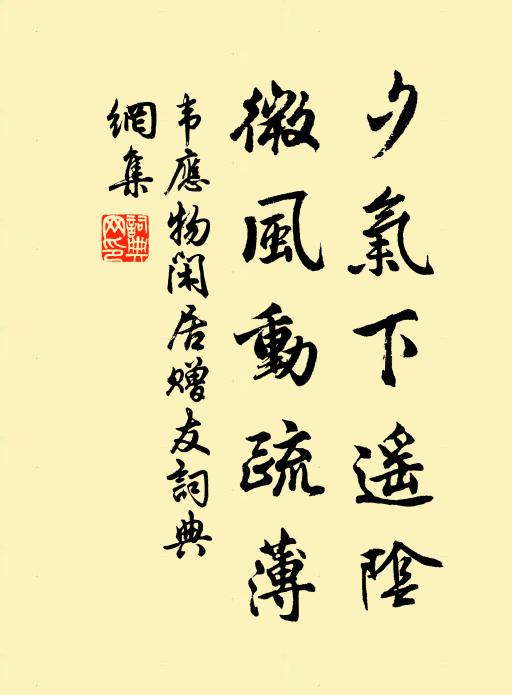 夕氣下遥陰
微風動疏薄
韦應物閑居赠友詞典
網集
詞典網印